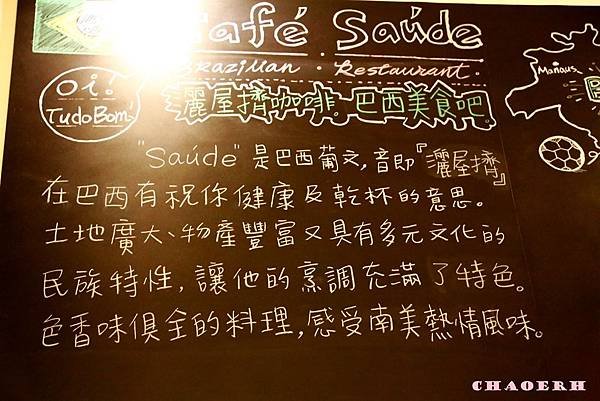 Café Saúde
Brazilian · Restaurant ·
Oi!
TudoBom!
灑屋擠咖啡.巴西美食吧
Manaus
"Saúde"是巴西葡文,音即『灑屋擠』
在巴西有祝你健康及乾杯的意思。
土地廣大、物產豐富又具有多元文化的
民族特性,讓他的烹調充滿了特色。
色香味俱全的料理,感受南美熱情風味。
CHAOERH